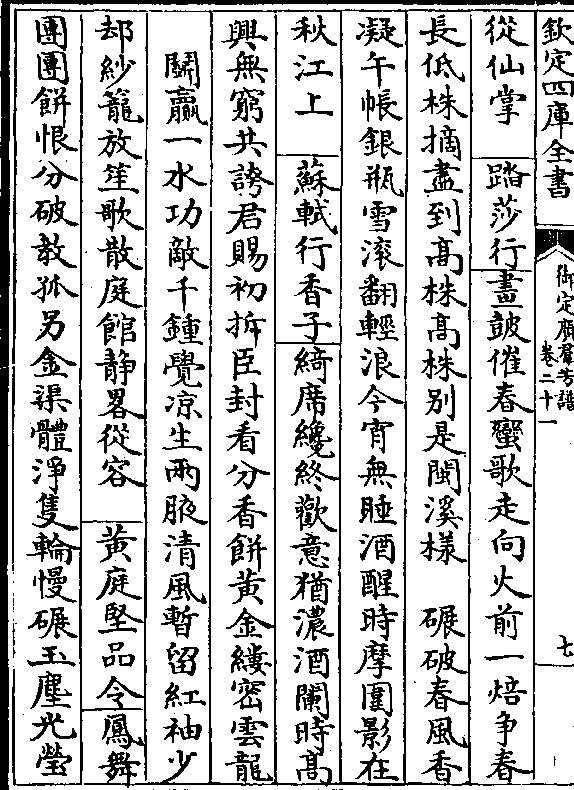 欽定四庫全書
御定廣羣芳譜
卷二十一
七
從仙掌　踏莎行　畫鼔催春蠻歌走向火前一焙争春
長低株摘盡到髙株髙株别是閩溪様　碾破春風香
凝午帳銀瓶雪滚翻輕浪今宵無睡酒醒時摩圍影在
秋江上　蘇軾行香子　綺席纔終歡意猶濃酒闌時髙
興無窮共誇君賜初拆臣封看分香餅黄金縷密雲龍
鬭贏一水功敵千鍾覺凉生兩腋清風暫留紅袖少
却紗籠放笙歌散庭館静畧從容　黄庭堅品令　鳳舞
團團餅恨分破教孤另金渠體淨隻輪慢碾玉塵光瑩